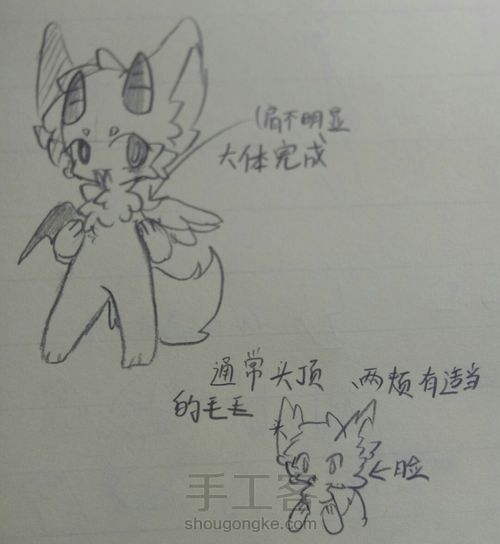 (肩不明显
大体完成
通常头顶、两颊有适当
的毛毛
脸
手工客
shougongke.com